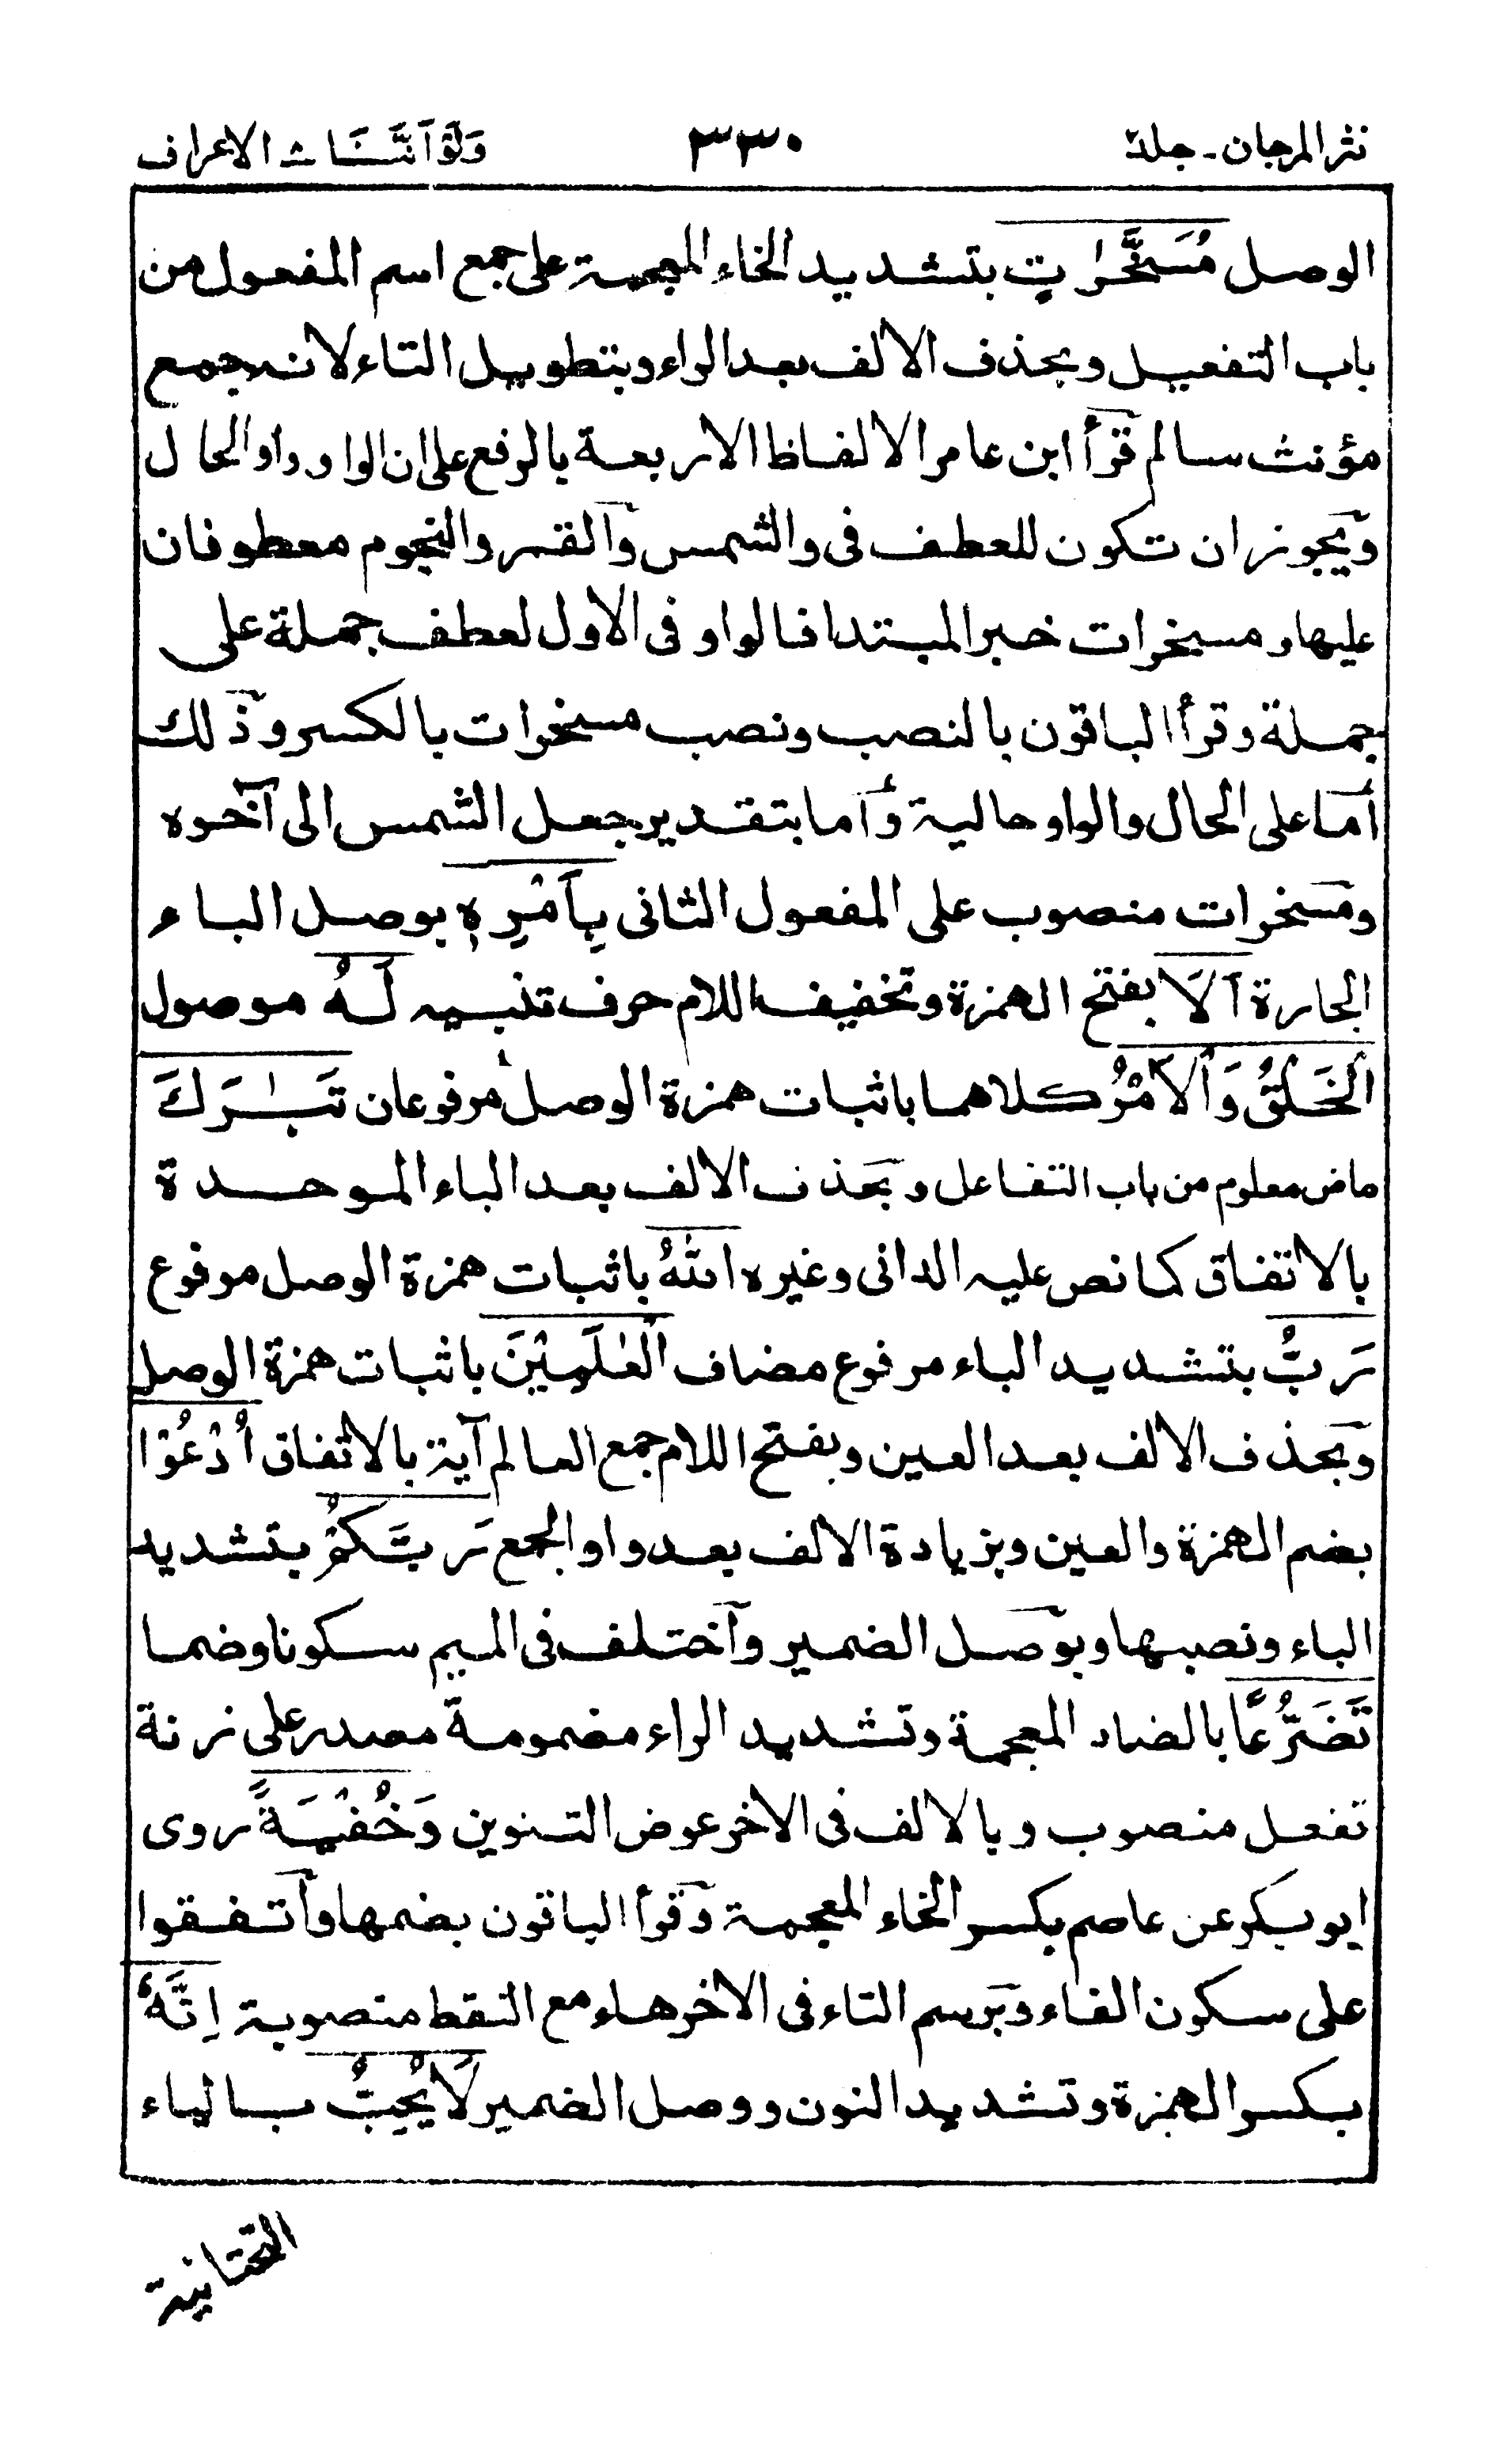 نثر المرجان - جلد ٣٣٠ ولو أننا الاعراف
الوصل مُسَخَّرٰاتٍ بتشديد الخاء المعجمة على جمع اسم المفعول من
باب التفعيل وبحذف الالف بعد الراء وبتطويل التاء لانه جمع
مؤنث سالم قرأ ابن عامر الالفاظ الاربعة بالرفع على ان الواو واو الحال
ويجوز ان تكون للعطف فى والشمس والقمر والنجوم معطوفان
عليها ومسخرات خبر المبتدا فالواو فى الاول لعطف جملة على
جملة وقرأ الباقون بالنصب ونصب مسخرات بالكسر وذلك
أما على الحال والواو حالية وأما بتقدير جعل الشمس الى آخره
ومسخرات منصوب على المفعول الثانى بِاَمْرِهٖ بوصل الباء
الجارة اَلَا بفتح الهمزة وتخفيف اللام حرف تنبيه لَهُ موصول
اَلْخَلْقُ وَاَلْاَمْرُ كلاهما باثبات همزة الوصل مرفوعان تَبٰرَكَ
ماض معلوم من باب التفاعل وبحذف الالف بعد الباء الموحدة
بالاتفاق كما نص عليه الدانى وغيره اللّٰهُ باثبات همزة الوصل مرفوع
رَبُّ بتشديد الباء مرفوع مضاف الْعٰلَمِيْنَ باثبات همزة الوصل
وبحذف الالف بعد العين وبفتح اللام جمع العالم آية بالاتفاق اُدْعُوْا
بضم الهمزة والعين وبزيادة الالف بعد واو الجمع رَبَّكُمْ بتشديد
الباء ونصبها وبوصل الضمير وآختلف فى الميم سكونا وضما
تَضَرُّعًا بالضاد المعجمة وتشديد الراء مضمومة مصدر على زنة
تفعل منصوب وبالالف فى الاخر عوض التنوين وَخُفْيَةً روى
ابو بكر عن عاصم بكسر الخاء المعجمة وقرأ الباقون بضمها وآتفقوا
على سكون الفاء وبرسم التاء فى الاخر هاء مع النقط منصوبة اِنَّهُ
بكسر الهمزة وتشديد النون ووصل الضمير لَا يُحِبُّ بالياء
التحتانية